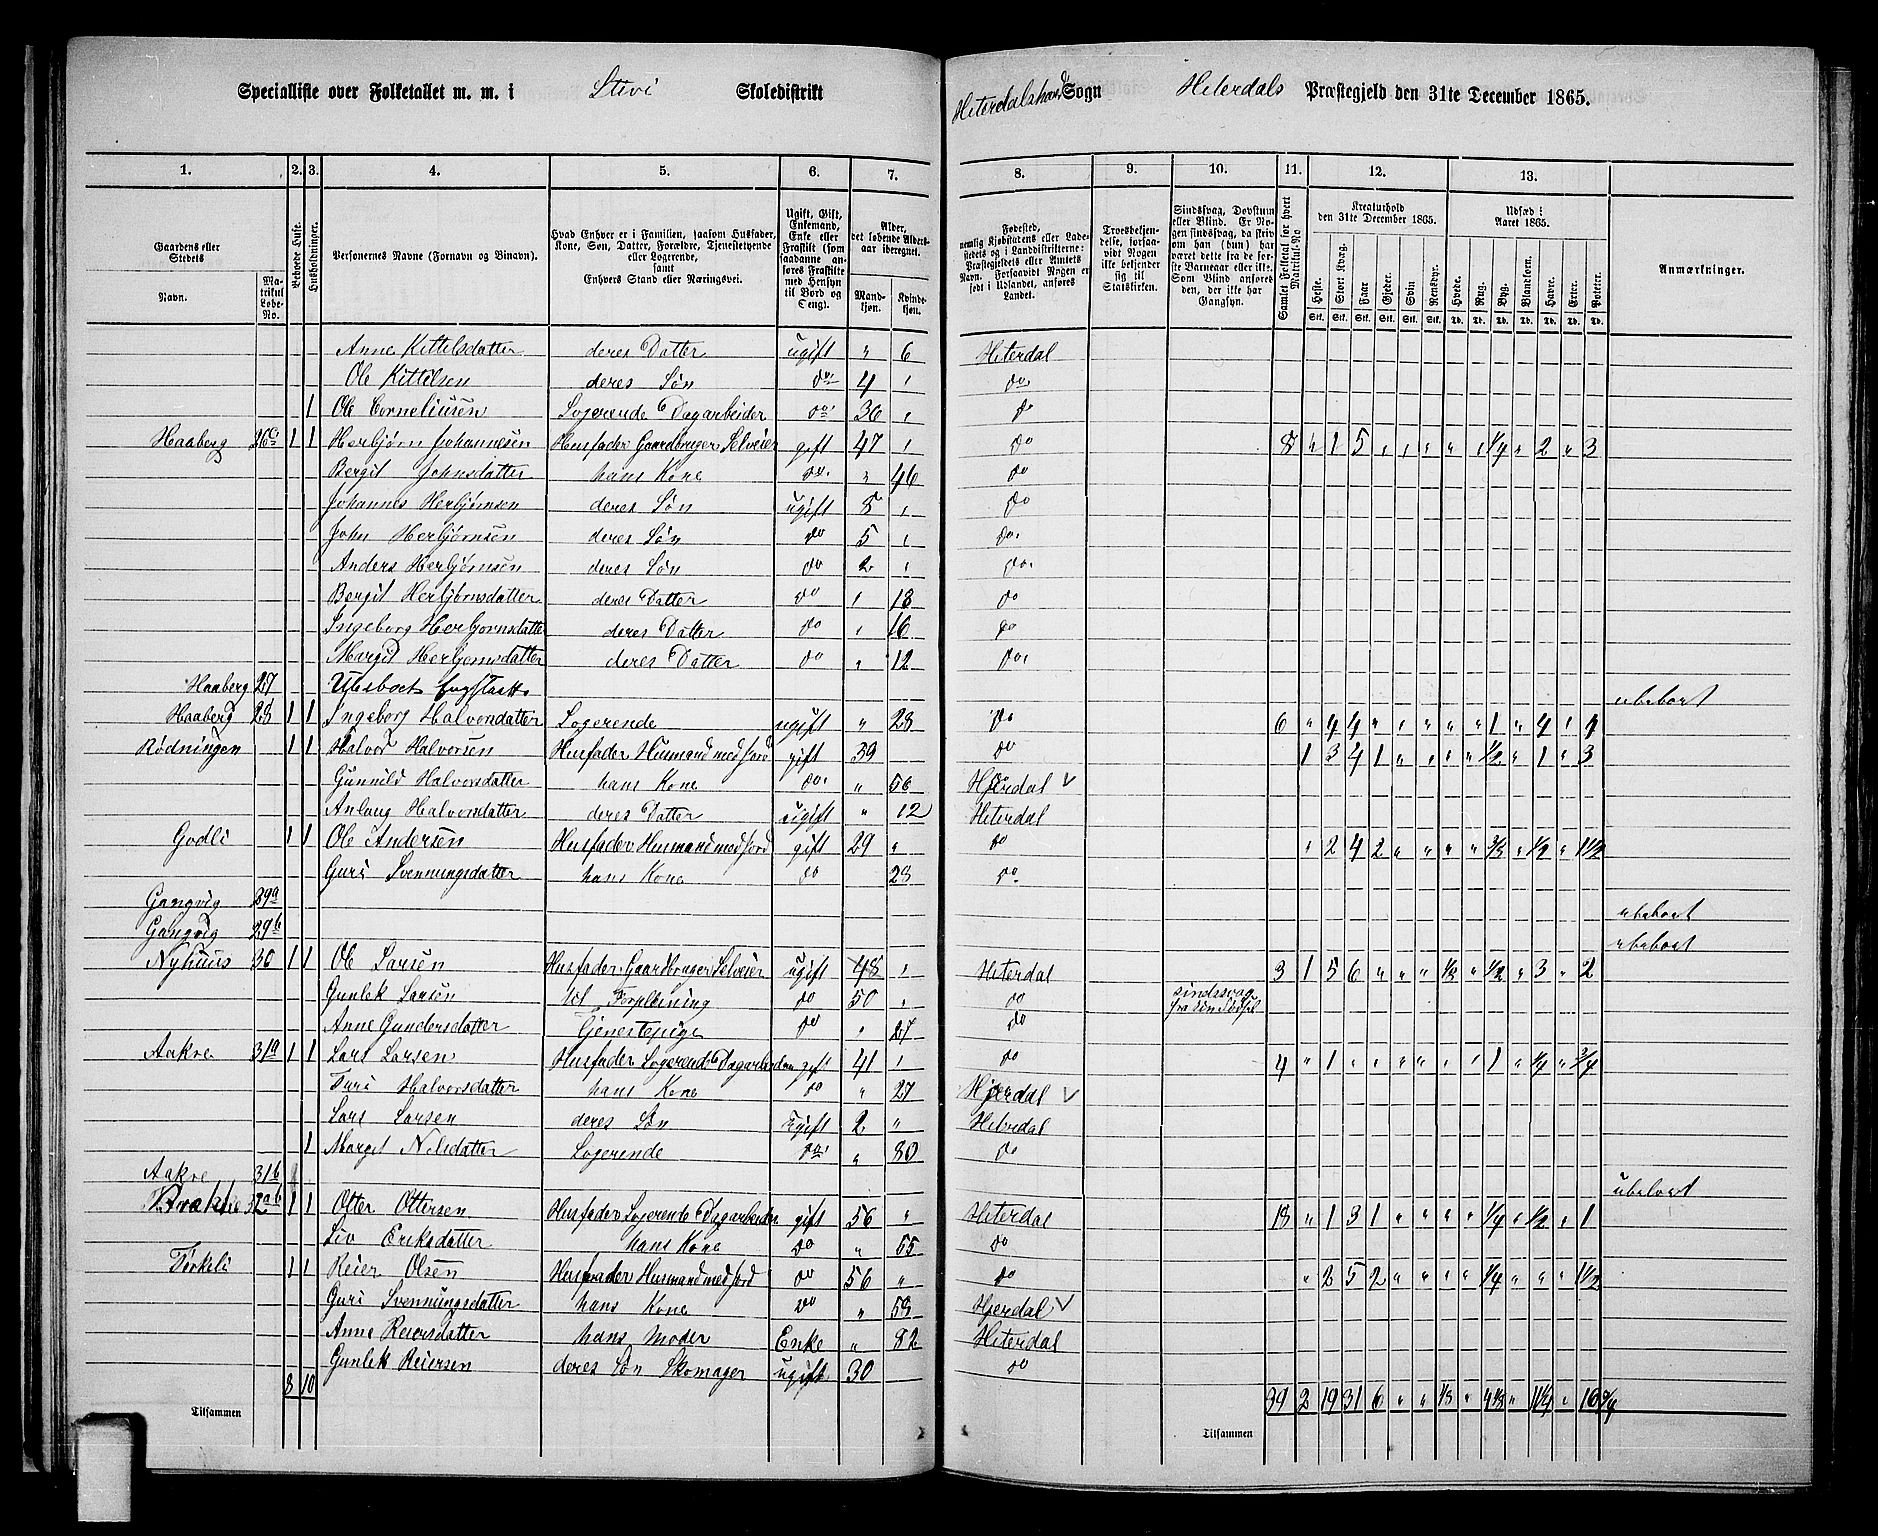 Specialliste over Folketallet m. m. i Stivi Skoledistrikt
Hiterdals Sogn Hiterdals Præstegjeld den 31te December 1865.
1. 2. 3. 4. 5. 6. 7. 8. 9. 10. 11. 12. 13.
Gaardens eller Stedets Navn. Matrikul Løbe-No.
Beboede Huse.
Husholdninger.
Personernes Navne (Fornavn og Binavn).
Hvad Enhver er i Familien, saasom Husfader, Kone, Søn, Datter, Forældre, Tjenestetyende eller Logerende, samt Enhvers Stand eller Næringsvei.
Ugift, Gift, Enkemand, Enke eller Fraskilt (som saadanne anføres Fraskilte med Hensyn til Bord og Seng).
Alder, det løbende Aldersaar iberegnet. Mandkjøn. Kvindekjøn.
Fødested, nemlig Kjøbstadens eller Ladestedets og i Landdistrikterne: Præstegjeldets eller Amtets Navn. Forsaavidt Nogen er født i Udlandet, anføres Landet.
Troesbekjendelse, forsaavidt Nogen ikke bekjender sig til Statskirken.
Sindssvag, Døvstum eller Blind. Er Nogen sindssvag, da skriv om han (hun) har været dette fra de første Barneaar eller ikke. Som Blind ansøres den, der ikke har Gangsyn.
Samlet Folketal for hvert Matrikul-No
Kreaturhold den 31te December 1865. Heste. Stort Kvæg. Faar Gjeder. Svin Rensdyr.
Udsæd i Aaret 1865. Hvede. Rug. Byg. Blandkorn. Havre. Erter. Poteter.
Anmærkninger.
Anne Kittelsdatter deres Datter ugift " 6 Hiterdal
Ole Kittilsen deres Søn do 4 " do
1 Ole Corneliusen Logerende Dagarbeider do 36 " do
Haaberg 26 1 1 Herbjørn Johannesen Husfader Gaardbruger Selveier gift 47 " do 8 " 1 5 " " " " " 1/4 " 2 " 3
Bergit Johnsdatter hans Kone do " 46 do
Johannes Herbjørnsen deres Søn ugift 8 " do
John Herbjørnsen deres Søn do 5 " do
Anders Herbjørnsen deres Søn do 2 " do
Bergit Herbjørnsdatter deres Datter do " 18 do
Ingeborg Herbjørnsdatter deres Datter do " 16 do
Margit Herbjørnsdatter deres Datter do " 12 do
Haaberg 27 Ubeboet ubeboet
Haaberg 28 1 1 Ingeborg Halvorsdatter Logerende ugift " 28 do 6 " 4 4 " " " " " 1 " 4 " 4
Rødningen 1 1 Halvor Halvorsen Husfader Husmand med Jord gift 39 do 1 3 4 1 " " " " 1/2 " 1 " 3
Gunnild Halvorsdatter hans Kone do " 56 Hjerdal
Anlaug Halvorsdatter deres Datter ugift " 12 Hiterdal
Godli 1 1 Ole Andersen Husfader Husmand med Jord gift 29 " do " 2 4 2 " " " " 3/8 " 1/2 " 1 1/2
Guri Svenningsdatter hans Kone do 28 do
Gangvig 29a ubeboet
Gangvig 29b ubeboet
Nyhuus 30 1 1 Ole Larsen Husfader Gaardbruger Selveier ugift 48 " Hiterdal 3 1 5 6 " " " 1/8 " 1/2 " 3 " 2
Gunlek Larsen til Forpleining do 50 " do sindssvag
Anne Gundersdatter Tjenestepige do " 27 do
Aakre 31a 1 1 Lars Larsen Husfader Logerende Dagarbeider gift 41 " do 4 " 1 " " " " " " 1 " 1/4 " 3/4
Turi Halvorsdatter hans Kone do " 27 Hjerdal
Lars Larsen deres Søn Ugift 2 " Hiterdal
1 Margit Nilsdatter Logerende do " 80 do
Aakre 31b ubeboet
Brække 32ab 1 1 Otter Ottersen Husfader Logerende Dagarbeider gift 56 " Hiterdal 18 " 1 3 1 " " " " 1/4 " 1/2 " 1
Liv Eriksdatter hans Kone do " 55 do
Torkeli 1 1 Reier Olsen Husfader Husmand med Jord do 56 " do " 2 5 2 " " " " 1/4 " " " 1 1/2
Guri Svennungsdatter hans Kone do " 58 Hjerdal
Anne Reiersdatter hans Moder Enke " 82 Hiterdal
Gunlek Reiersen deres Søn Skomager ugift 30 do
8 10 39 2 19 31 6 " " 1/8 " 4 1/8 " 11 1/4 " 16 3/4
Tilsammen Tilsammen